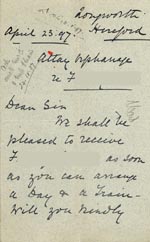 Longworth
Hereford
April 23. 97.
Attay Orphanage
re F
Dear Sir
We shall be
pleased to receive
F as soon
as you can arrange
a Day & a Train-
Will you kindly